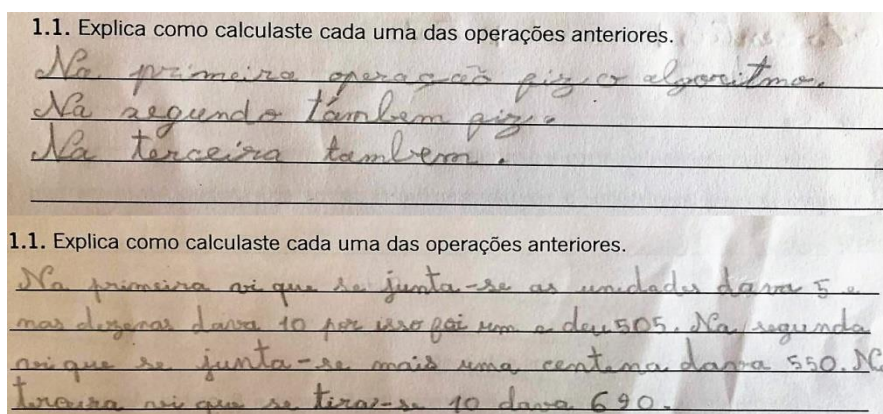 1.1. Explica como calculaste cada uma das operações anteriores.
Na primeira operação fiz o algoritmo.
Na segundo támbem fiz.
Na terceira tambem.
1.1. Explica como calculaste cada uma das operações anteriores.
Na primeira vi que se junta-se as unidades dava 5 e
mas dezenas dava 10 por isso foi um e deu 505. Na segunda
vi que se junta-se mais uma centena dava 550. Na
terceira vi que se tira-se 10 dava 690.